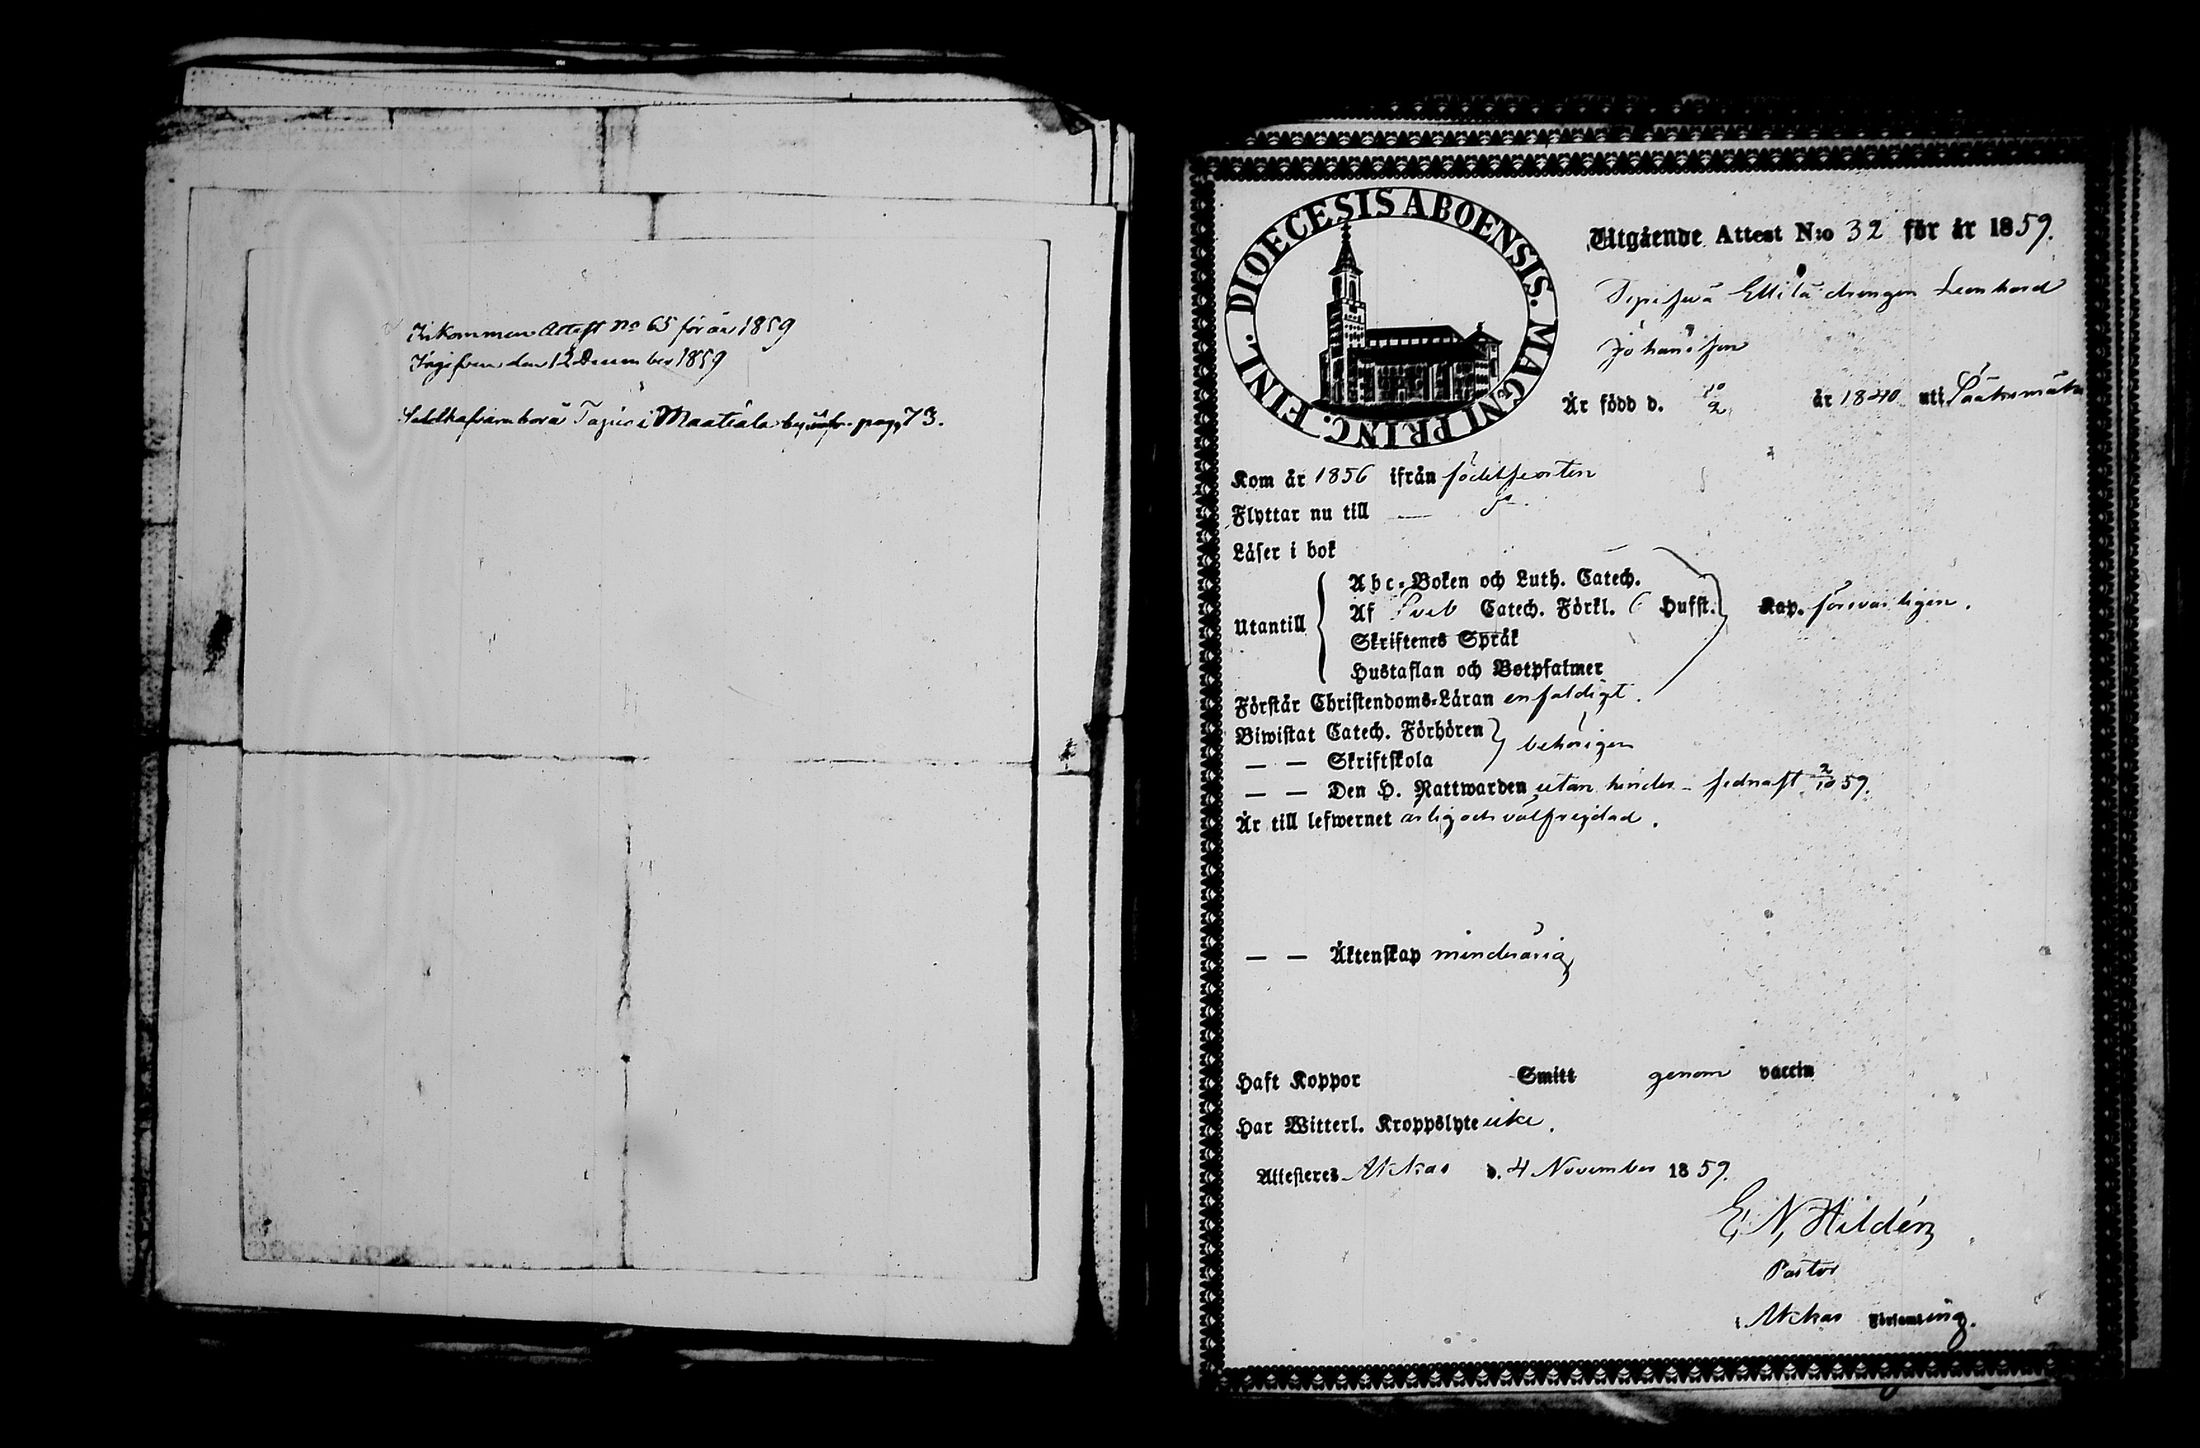 Inkommen Attest no 65 för år 1859
Ingifven den 12 December 1859
i Maatiala by pag. 73.
DIOECESIS ABOENSIS. MAGNI PRINC. FINL.
Utgående Attest N:o 32 för år 1859.
drengen Leonhard
Johansson
Är född d. 10/2 år 1840 uti
Kom år 1856 ifrån födelseorten
Flyttar nu till —
Läser i bok
Utantill
Abc-Boken och Luth. Catech.
Af Sveb Catech. Förkl. 6 Hufst. Kap. försvarligen.
Skriftenes Språk
Hustaflan och Botpsalmer
Förstår Christendoms-Läran enfaldigt.
Biwistat Catech. Förhören behörigen
— — Skriftskola
— — Den H. Nattwarden utan hinder – sednast 2/10 59.
Är till lefwernet ärlig och välfrejdad.
— — Äktenskap minderårig
Haft Koppor Smitt genom vaccin
Har Witterl. Kroppslyte icke.
Attesteres Akkas d. 4 November 1859.
E. N. Hildén
Pastor
i Akkas Församling.